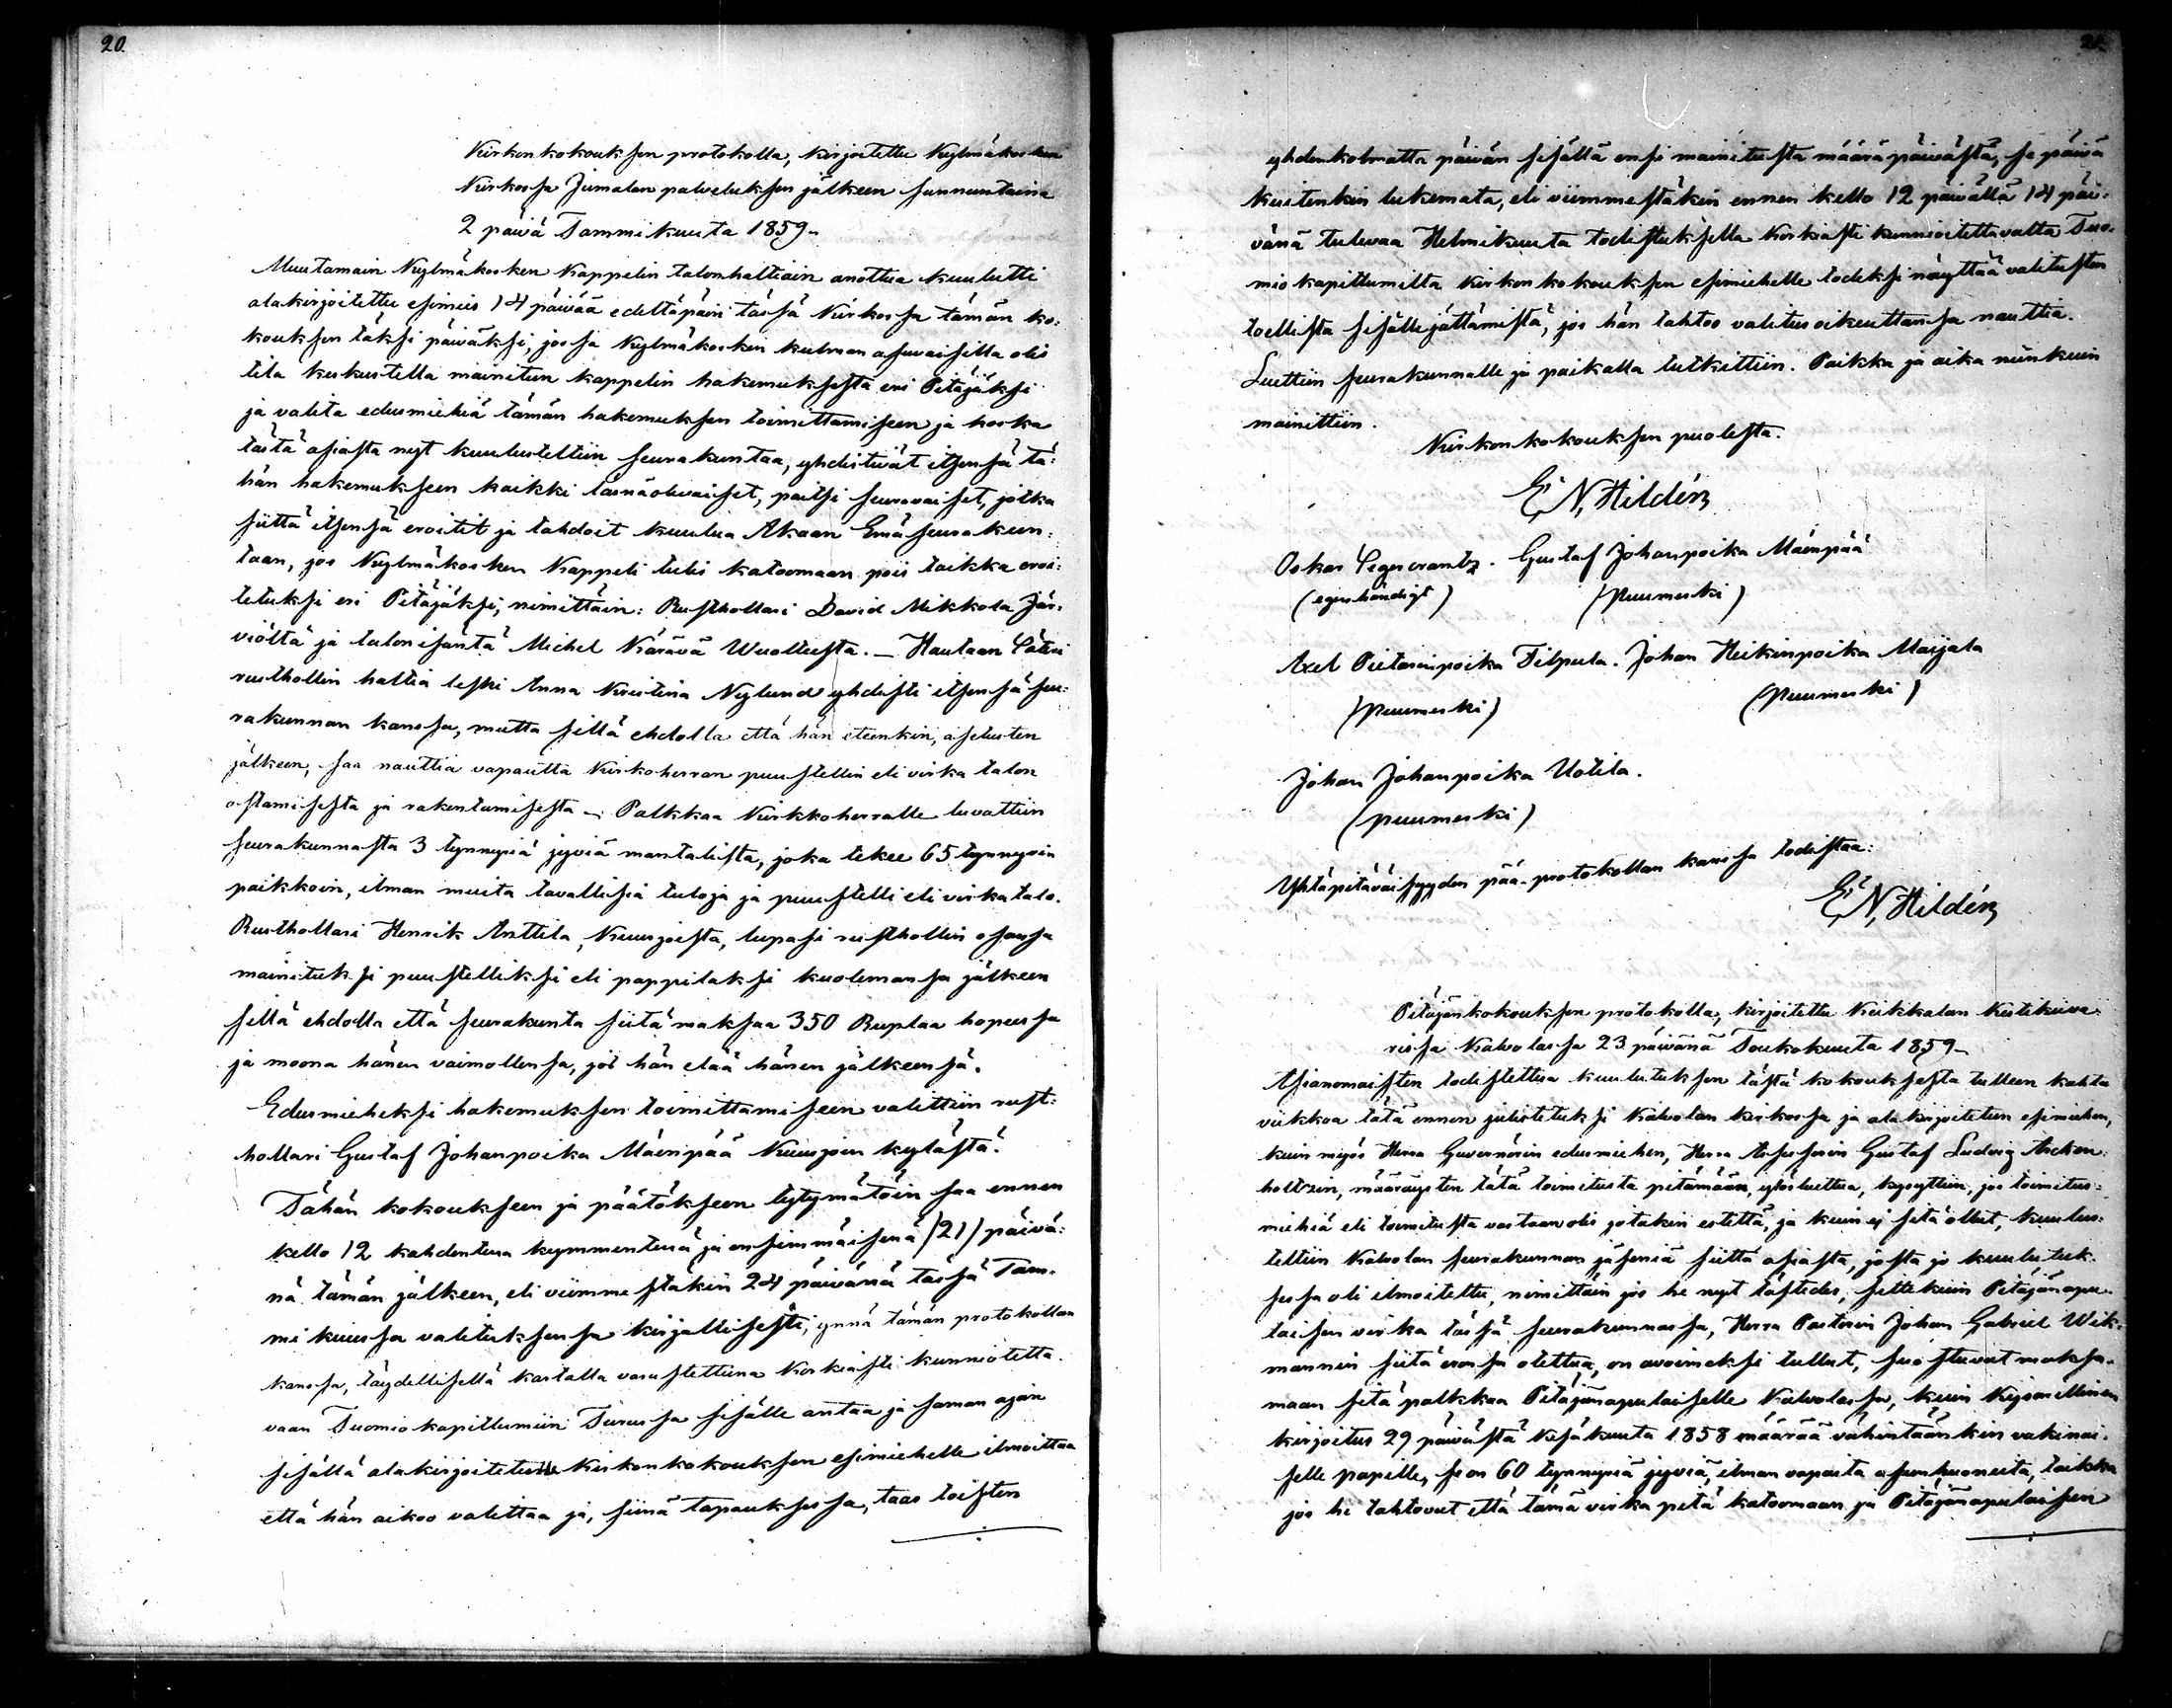 20.
Kirkonkokouksen protokolla, kirjoitettu Kylmäkosken
Kirkossa Jumalan palveluksen jälkeen sunnuntaina
2 päivä Tammikuuta 1859.
Muutamain Kylmäkosken Kappelin talonhaltiain anottua kuulutti
alakirjoitettu esimies 14 päivää edeltäpäin tässä Kirkossa tämän ko-
kouksen täksi päiväksi, jossa Kylmäkosken kulman asuvaisilla olis
tila keskustella mainitun kappelin hakemuksesta eri Pitäjäksi
ja valita edusmiehiä tämän hakemuksen toimittamiseen ja koska
tästä asiasta nyt kuulusteltiin seurakuntaa, yhdistivät itsensä tä-
hän hakemukseen kaikki läsnäolevaiset, paitsi seuravaiset, jotka
siittä itsensä eroitit ja tahdoit kuulua Akaan Emäseurakun-
taan, jos Kylmäkosken Kappeli tulis katoomaan pois taikka eroi-
tetuksi eri Pitäjäksi, nimittäin: Rusthollari David Mikkola Jär-
viöltä ja talonisäntä Michel Kärävä Wuollesta. — Hautaan Säteri
rusthollin haltia leski Anna Kristina Nylund yhdisti itsensä seu-
rakunnan kanssa, mutta sillä ehdolla että hän eteenkin, asetusten
jälkeen, saa nauttia vapautta Kirkoherran puustellin eli virka talon
ostamisesta ja rakentamisesta — Palkkaa Kirkkoherralle luvattiin
seurakunnasta 3 tynnyriä jyviä manttalista, joka tekee 65 tynnyrin
paikkoin, ilman muita tavallisia tuloja ja puustelli eli virkatalo.
Rusthollari Henrik Anttila, Kuurjoesta, lupasi rusthollin osansa
mainituksi puustelliksi eli pappilaksi kuolemansa jälkeen
sillä ehdolla että seurakunta siitä maksaa 350 Ruplaa hopeassa
ja moona hänen vaimollensa, jos hän elää hänen jälkeensä.
Edusmieheksi hakemuksen toimittamiseen valittiin rust-
hollari Gustaf Johanpoika Mäenpää Kuurjoen kylästä.
Tähän kokoukseen ja päätökseen tytymätöin saa ennen
kello 12 kahdentena kymmentenä ja ensimmäisenä (21) päivä-
nä tämän jälkeen, eli viimmestäkin 24 päivänä tässä Tam-
mi kuussa valituksensa kirjallisesti, ynnä tämän protokollan
kanssa, täydellisellä kartalla varustettuna Korkiasti kunniotetta-
vaan Tuomiokapitlumiin Turussa sisälle antaa ja saman ajan
sisällä alakirjoitetulle Kirkonkokouksen esimiehelle ilmoittaa
että hän aikoo valittaa ja, siinä tapauksessa, taas toisten
21.
yhdenkolmatta päivän sisällä ensi mainitusta määräpäivästä, se päivä
kuitenkin lukemata, eli viimmestäkin ennen kello 12 päivällä 14 päi-
vänä tulevaa Helmikuuta todistuksella Korkiasti kunnioitettavalta Tuo-
miokapitlumilta Kirkonkokouksen esimiehelle todeksi näyttää valitusten
toellista sisälle jättämistä, jos hän tahtoo valitusoikeuttansa nauttia.
Luettiin seurakunnalle ja paikalla tutkittiin. Paikka ja aika niinkuin
mainittiin.
Kirkonkokouksen puolesta.
E. N. Hildén
Oskar Segercrantz. Gustaf Johanpoika Mäenpää
(egenhändigt) (puumerki)
Axel Pietarinpoika Tilpula. Johan Heikinpoika Maijala
(puumerki) (puumerki)
Johan Johanpoika Uotila.
(puumerki)
Yhtäpitäväisyyden pää-protokollan kanssa todistaa:
E. N. Hildén
Pitäjänkokouksen protokolla, kirjoitettu Keikkalan Kestikieva-
rissa Kalvolassa 23 päivänä Toukokuuta 1859.
Asianomaisten todistettua kuulutuksen tästä kokouksesta tulleen kahta
viikkoa tätä ennen julistetuksi Kalvolan kirkossa ja alakirjoitetun esimiehen,
kuin myös Herra Guvernörin edusmiehen, Herra Assessorin Gustaf Ludvig Ascken-
holtzin, määräysten tätä toimitusta pitämään, ylösluettua, kysyttiin, jos toimitus-
miehiä eli toimitusta vastaan olis jotakin estettä, ja kuin ej sitä ollut, kuulus-
teltiin Kalvolan seurakunnan jäseniä siittä asiasta, josta jo kuulutuk-
sessa oli ilmoitettu, nimittäin jos he nyt täftedes, sittekuin Pitäjänapu-
laisen virka tässä seurakunnassa, Herra Pastorin Johan Gabriel Wik-
mannin siitä eronsa otettua, on avoimeksi tullut, suostuvat maksa-
maan sitä palkkaa Pitäjänapulaiselle Kalvolassa, kuin Keisarillinen
kirjoitus 29 päivästä Kesäkuuta 1858 määrää vähintäänkin vakinai-
selle papelle, se on 60 tynnyriä jyviä, ilman vapaita asuinhuoneita, taikka
jos he tahtovat että tämä virka pitä katoomaan ja Pitäjänapulaisen